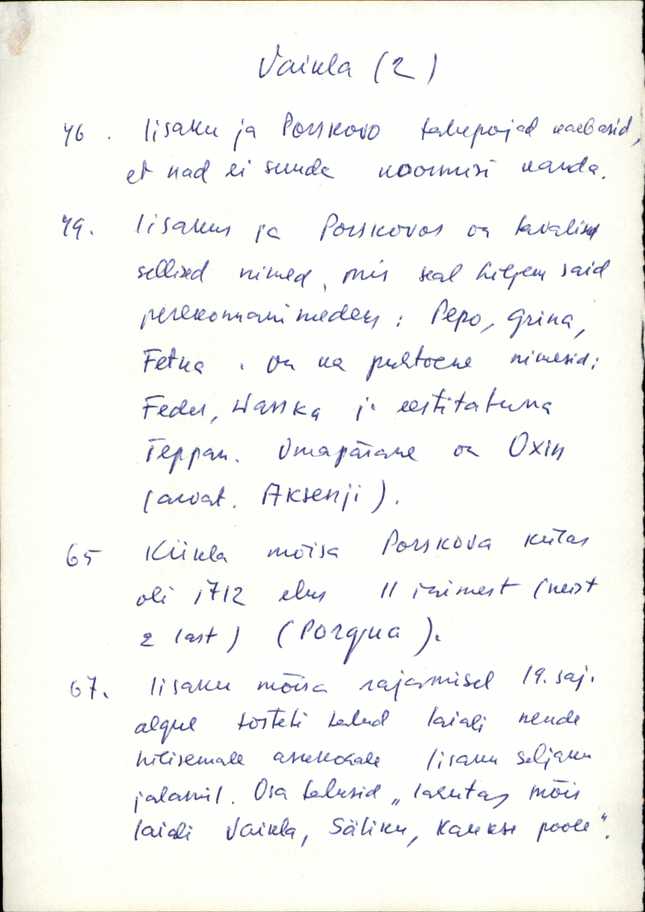 Vaikla (2)
46. Iisaku ja Porskovo talupojad kaebasid,
et nad ei suuda koormisi kanda.
49. Iisakus ja Porskovos on tavalised
sellised nimed, mis seal hiljem said
perekonnanimedeks: Pepo, Grina,
Fetka. On ka puhtvene nimesid:
Feder, Wasska ja eestitatuna
Teppan. Omapärane on Oxin
(arvat. Aksenji).
65 Kiikla mõisa Porskova külas
oli 1712 elus 11 inimest (neist
2 last) (Pozgua).
67. Iisaku mõisa rajamisel 19. saj.
algul tõsteti talud laiali nende
hilisemale asukohale Iisaku seljaku
jalamil. Osa talusid „lahutas mõis
laiali Vaikla, Sälliku, Kauksi poole".